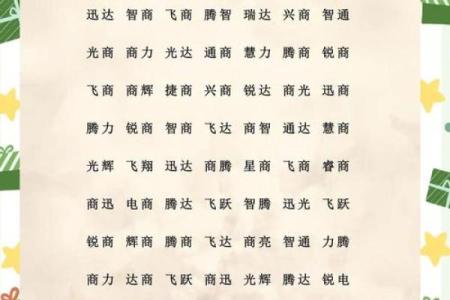 迅达 智商 飞商 腾智 瑞达 兴商 智通
光商 商力 光达 通商 慧力 腾商 锐商
飞商 商辉 捷商 兴商 锐达 商光 迅商
腾力 锐商 智商 飞达 商智 通达 慧商
光辉 飞翔 迅达 商腾 星商 飞商 睿商
商迅 电商 腾达 飞跃 智腾 迅光 飞跃
锐商 辉商 腾商 飞达 商亮 智通 力腾
商力 达商 飞跃 商迅 光辉 腾达 锐电